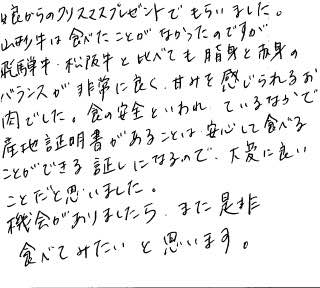 娘からのクリスマスプレゼントでもらいました。
山形牛は食べたことがなかったのですが
飛騨牛・松阪牛と比べても脂身と赤身の
バランスが非常に良く、甘みを感じられるお
肉でした。食の安全といわれているなかで
産地証明書があることは安心して食べる
ことができる証しになるので、大変に良い
ことだと思いました。
機会がありましたら、また是非
食べてみたいと思います。